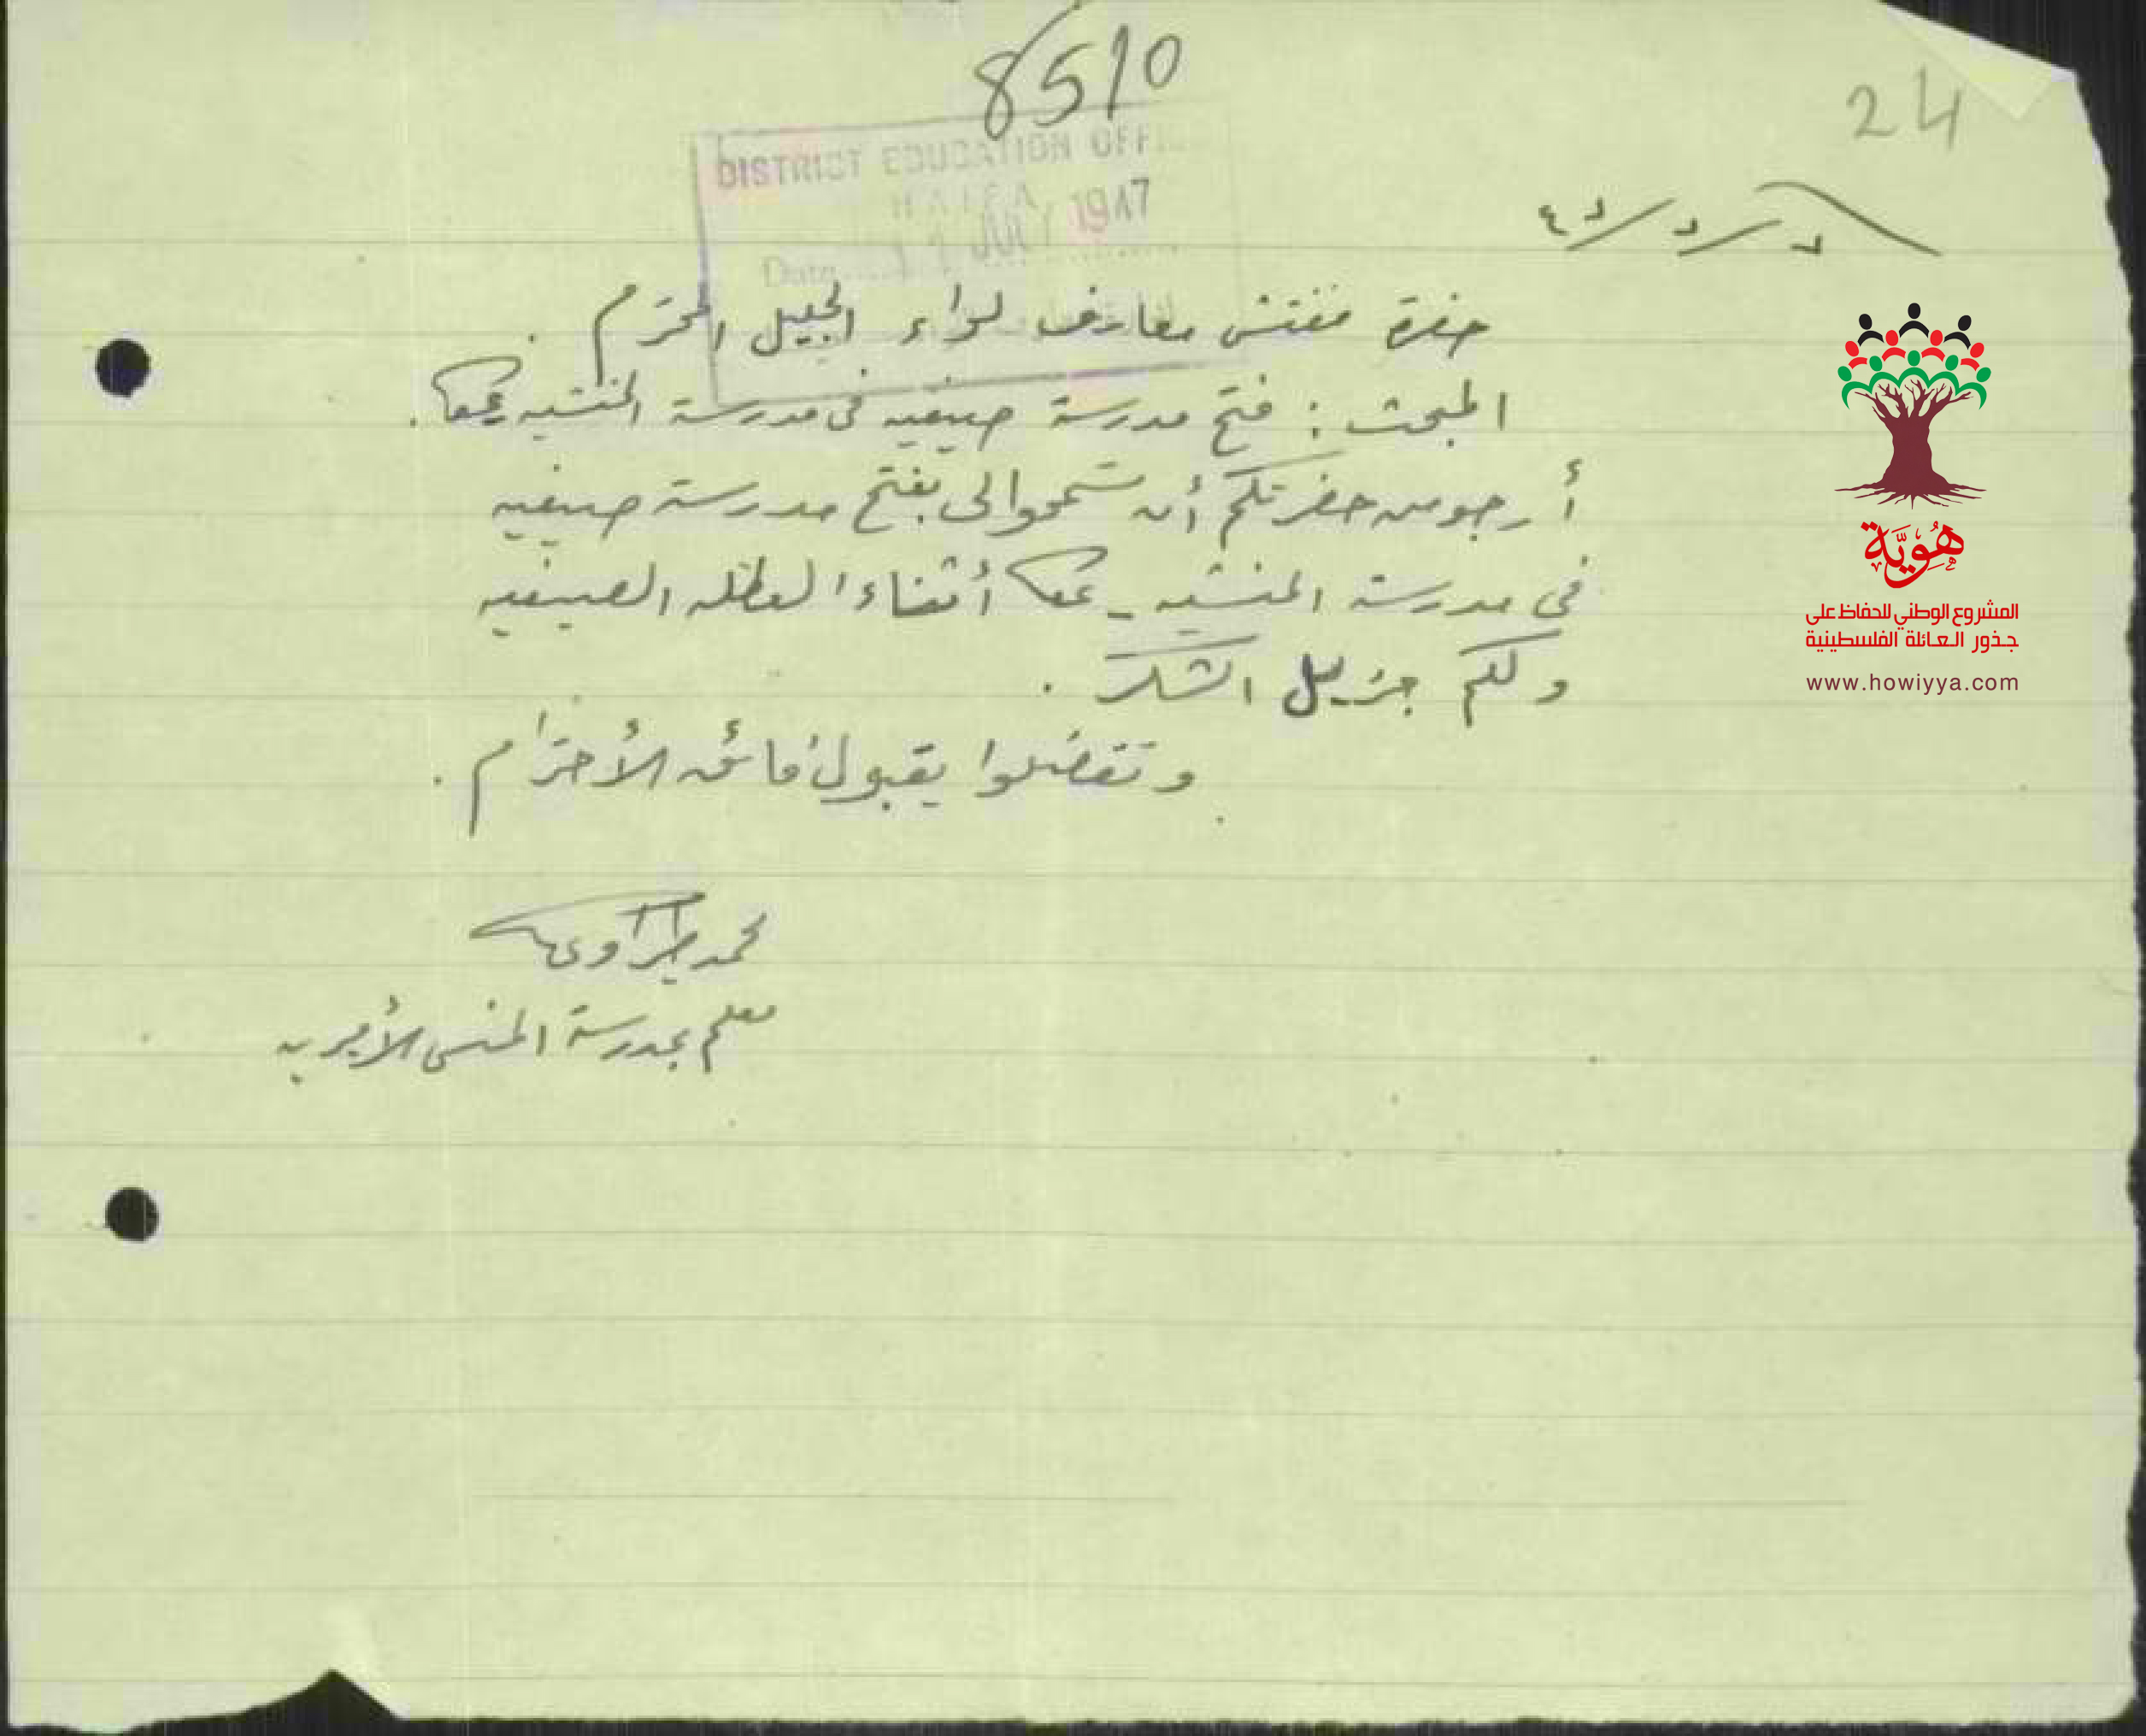 8510
24
DISTRICT EDUCATION OFFI
HAIFA
Date 11 JULY 1947
٧/٧/٤٧
حضرة مفتش معارف لواء الجليل المحترم .
المبحث : فتح مدرسة صيفيه في مدرسة المنشيه عكا .
أرجو من حضرتكم أن تسمحوا لي بفتح مدرسة صيفيه
في مدرسة المنشيه - عكا أثناء العطله الصيفيه
ولكم جزيل الشكر .
وتفضلوا بقبول فائق الأحترام .
محمد طيراوي
معلم بمدرسة المنسي الأميريه
هُوِيَّة
المشروع الوطني للحفاظ على
جذور العائلة الفلسطينية
www.howiyya.com